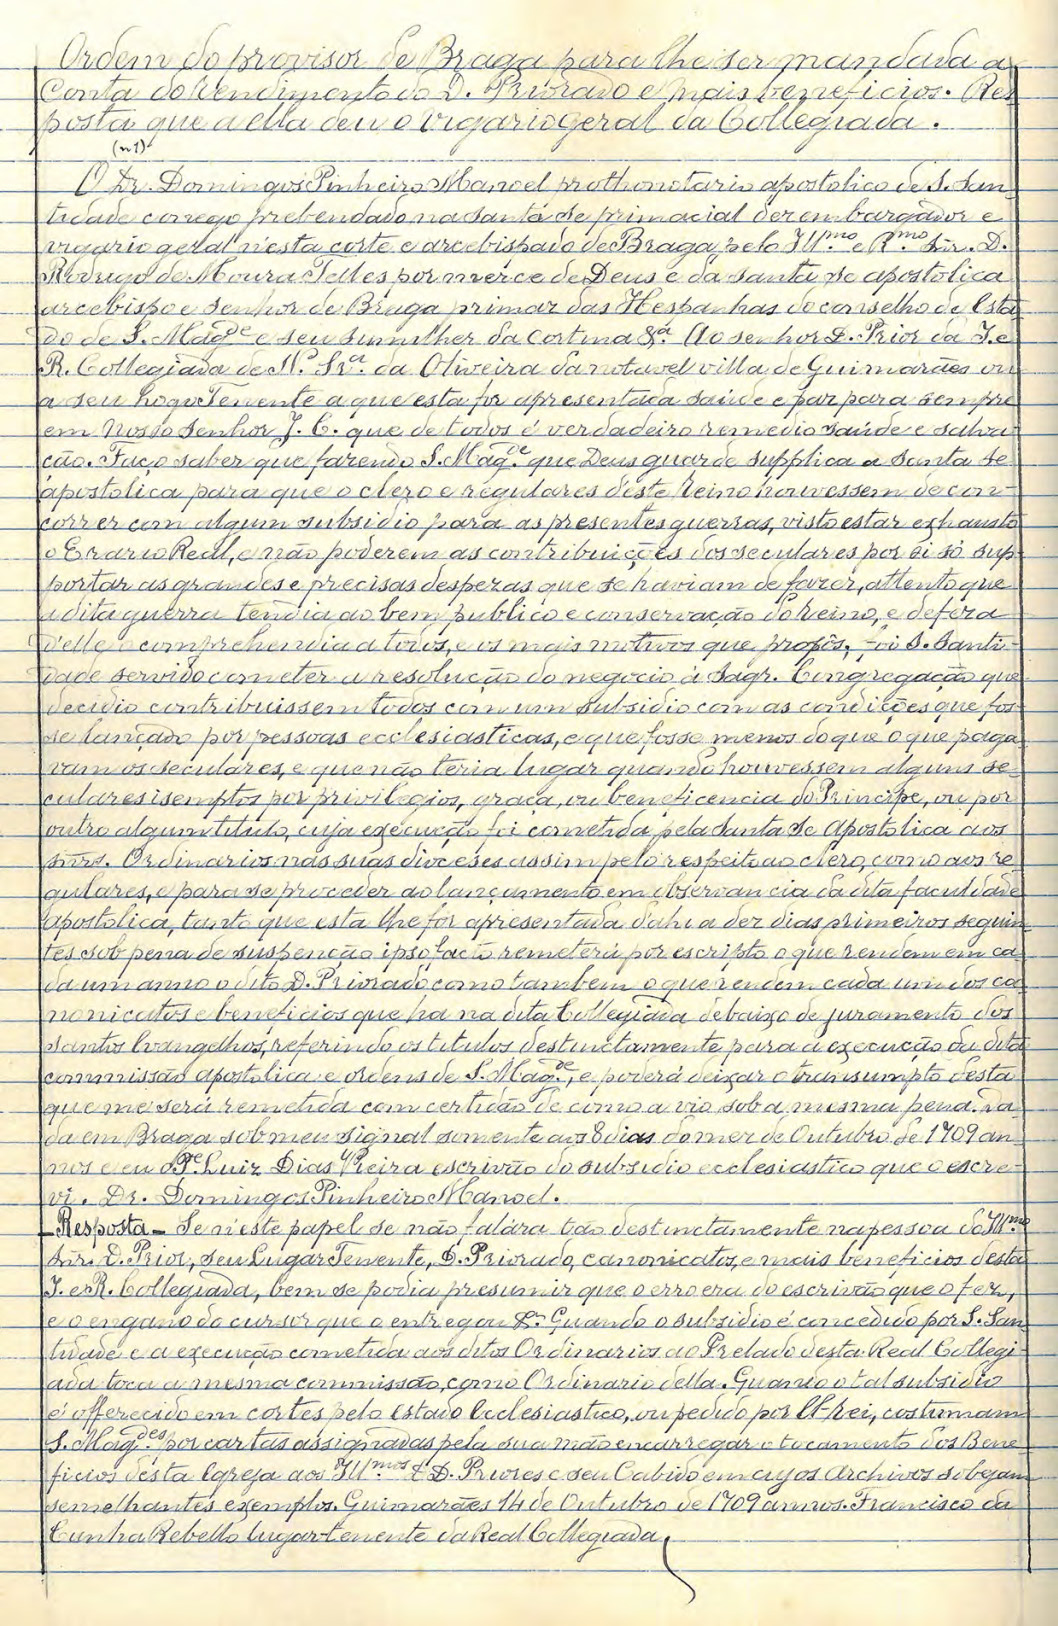 Ordem do provisor de Braga para lhe ser mandada a
Conta do rendimento do D. Priorado e mais beneficios. Res-
posta que a ella deu o vigario geral da Collegiada.
(nº1)
O Dr. Domingos Pinheiro Manoel prothonotario apostolico de S. San-
tidade conego prebendado na santa se primacial dezembargador e
vigario geral n'esta corte e arcebispado de Braga pelo Ill.mo e R.mo Snr. D.
Rodrigo de Moura Telles por merce de Deus e da santa se apostolica
arcebispo e senhor de Braga primaz das Hespanhas do conselho de Esta-
do de S. Mag.de e seu sumilher da cortina &.a Ao senhor D. Prior da I. e
R. Collegiada de N. Sr.a da Oliveira da notavel villa de Guimarães ou
a seu Logo Tenente a que esta for apresentada saude e paz para sempre
em Nosso Senhor J. C. que de todos é verdadeiro remedio saude e salva-
ção. Faço saber que fazendo S. Mag.de que Deus guarde supplica a Santa Se
apostolica para que o clero e regulares deste Reino houvessem de con-
correr com algum subsidio para as presentes guerras, visto estar exhausto
o Erario Real, e não poderem as contribuições dos seculares por si só sup-
portar as grandes e precisas despezas que se haviam de fazer, attento que
a dita guerra tendia ao bem publico e conservação do reino, e defeza
d'elle comprehendia a todos, e os mais motivos que propôs, foi S. Santi-
dade servido cometer a resolução do negocio á Sagr. Congregação que
decidio contribuissem todos com um subsidio com as condições que fos-
se lançado por pessoas ecclesiasticas, e que fosse menos do que o que paga-
vam os seculares, e que não teria lugar quando houvessem alguns se-
culares isemptos por privilegios, graça, ou beneficencia do Principe, ou por
outro algum titulo, cuja execução foi cometida pela Santa Se Apostolica aos
snrs. Ordinarios nas suas dioceses assim pelo respeito ao clero, como aos re-
gulares, e para se proceder ao lançamento em observancia da dita faculdade
apostolica, tanto que esta lhe for apresentada d'ahi a dez dias primeiros seguin-
tes sob pena de suspenção ipso facto remeterá por escripto o que rendem em ca-
da um anno o dito D. Priorado como tambem o que rendem cada um dos ca-
nonicatos e beneficios que ha na dita Collegiada debaixo de juramento dos
Santos Evangelhos, referindo os titulos destinctamente para a execução da dita
commissão apostolica e ordens de S. Mag.de, e poderá deixar o transumpto desta
que me será remetida com certidão de como a vio sob a mesma pena. Da-
da em Braga sob meu signal somente aos 8 dias do mez de Outubro de 1709 an-
nos e eu P.e Luiz Dias Vieira escrivão do subsidio ecclesiastico que o escre-
vi. Dr. Domingos Pinheiro Manoel.
Resposta - Se n'este papel se não falára tão destinctamente na pessoa do Ill.mo
Snr. D. Prior, seu Lugar Tenente, D. Priorado, canonicatos, e mais beneficios desta
I. e R. Collegiada, bem se podia presumir que o erro era do escrivão que o fez,
e o engano do cursor que o entregou &.a Quando o subsidio é concedido por S. San-
tidade e a execução cometida aos ditos Ordinarios ao Prelado desta Real Collegi-
ada toca a mesma commissão, como Ordinario della. Quando o tal subsidio
é offerecido em cortes pelo Estado Ecclesiastico, ou pedido por El-rei, costumam
S. Mag.des por cartas assignadas pela sua mão encarregar o tocamento dos Bene-
ficios desta Igreja aos Ill.mos D. Priores e seu Cabido em cujos Archivos sobejam
semelhantes exemplos. Guimarães 14 de Outubro de 1709 annos. Francisco da
Cunha Rebello lugar-tenente da Real Collegiada